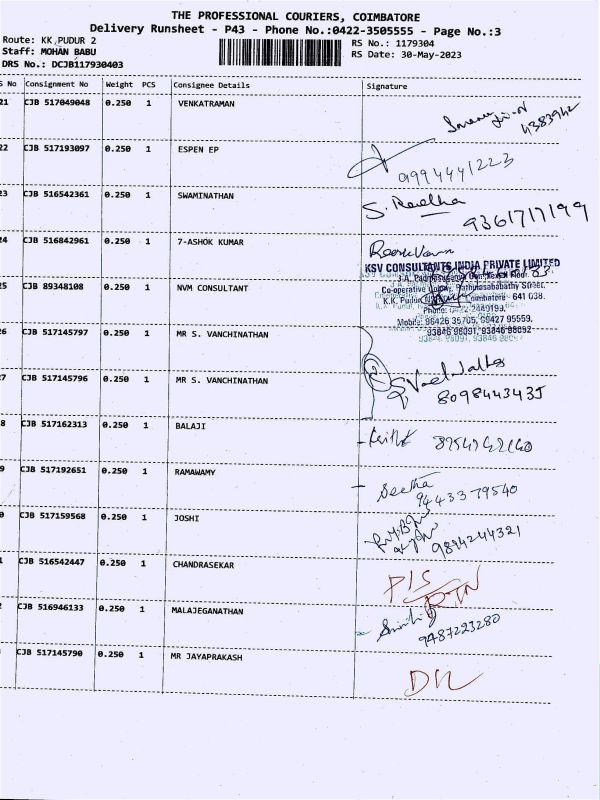 THE PROFESSIONAL COURIERS, COIMBATORE
Delivery Runsheet - P43 - Phone No.:0422-3505555 - Page No.:3
Route: KK,PUDUR 2
RS No.: 1179304
Staff: MOHAN BABU
RS Date: 30-May-2023
DRS No.: DCJB117930403
S No Consignment No Weight PCS Consignee Details Signature
21 CJB 517049048 0.250 1 VENKATRAMAN
22 CJB 517193097 0.250 1 ESPEN EP 9994441223
23 CJB 516542361 0.250 1 SWAMINATHAN S. Radha 9361717199
24 CJB 516842961 0.250 1 7-ASHOK KUMAR
KSV CONSULTANTS INDIA PRIVATE LIMITED
25 CJB 89348108 0.250 1 NVM CONSULTANT
Co-operative Colony,
K.K. Pudur, Coimbatore - 641 038.
Phone: 0422-2440193,
Mobile: 96426 35705, 99427 95559,
93846 98091, 93846 98092
26 CJB 517145797 0.250 1 MR S. VANCHINATHAN
7 CJB 517145796 0.250 1 MR S. VANCHINATHAN 8098443435
8 CJB 517162313 0.250 1 BALAJI
9 CJB 517192651 0.250 1 RAMAWAMY Seetha 9443379540
0 CJB 517159568 0.250 1 JOSHI 9894244321
CJB 516542447 0.250 1 CHANDRASEKAR P/S RTN
2 CJB 516946133 0.250 1 MALAJEGANATHAN 9487223280
CJB 517145790 0.250 1 MR JAYAPRAKASH D/L